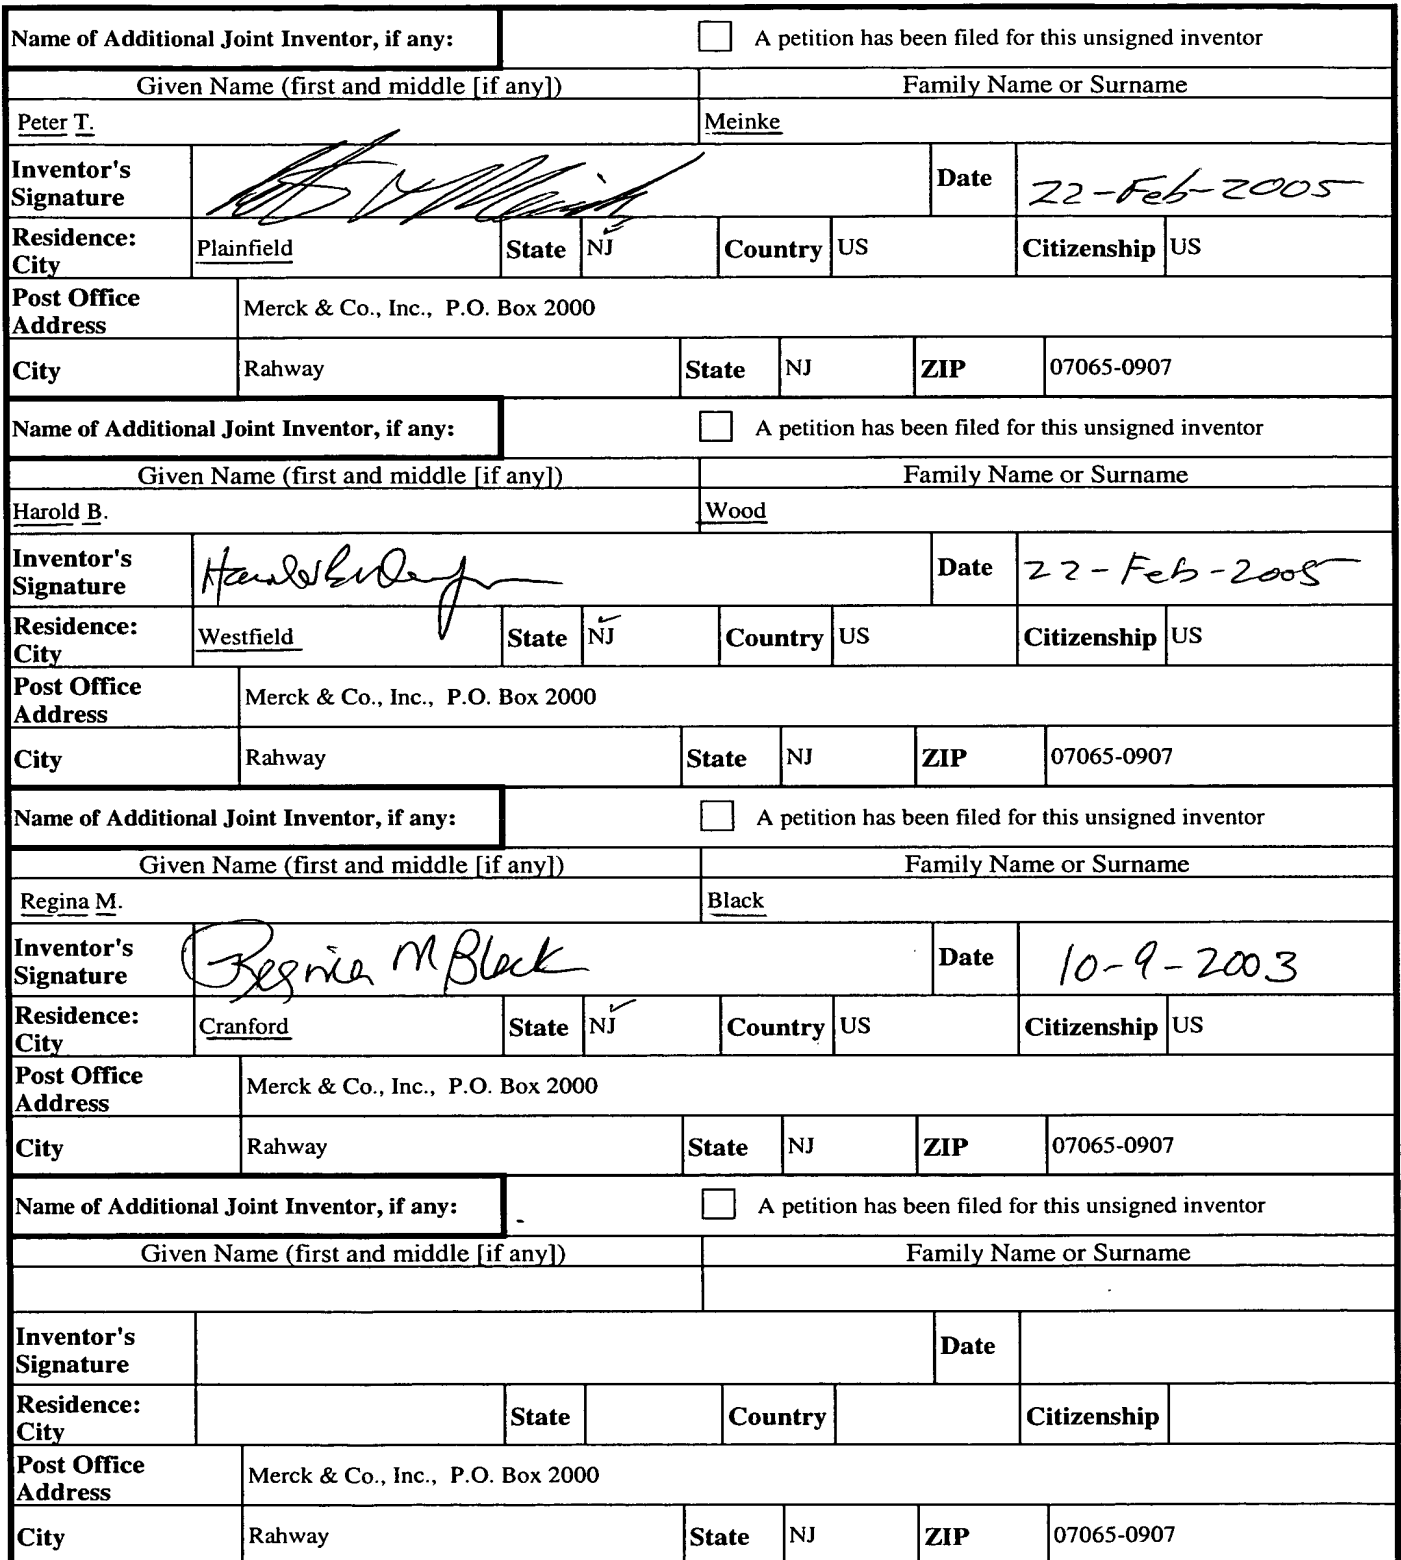 Name of Additional Joint Inventor, if any: A petition has been filed for this unsigned inventor
Given Name (first and middle [if any]) Family Name or Surname
Peter T. Meinke
Inventor's Signature Date 22-Feb-2005
Residence: City Plainfield State NJ Country US Citizenship US
Post Office Address Merck & Co., Inc., P.O. Box 2000
City Rahway State NJ ZIP 07065-0907
Name of Additional Joint Inventor, if any: A petition has been filed for this unsigned inventor
Given Name (first and middle [if any]) Family Name or Surname
Harold B. Wood
Inventor's Signature Date 22-Feb-2005
Residence: City Westfield State NJ Country US Citizenship US
Post Office Address Merck & Co., Inc., P.O. Box 2000
City Rahway State NJ ZIP 07065-0907
Name of Additional Joint Inventor, if any: A petition has been filed for this unsigned inventor
Given Name (first and middle [if any]) Family Name or Surname
Regina M. Black
Inventor's Signature Regina M Black Date 10-9-2003
Residence: City Cranford State NJ Country US Citizenship US
Post Office Address Merck & Co., Inc., P.O. Box 2000
City Rahway State NJ ZIP 07065-0907
Name of Additional Joint Inventor, if any: A petition has been filed for this unsigned inventor
Given Name (first and middle [if any]) Family Name or Surname
Inventor's Signature Date
Residence: City State Country Citizenship
Post Office Address Merck & Co., Inc., P.O. Box 2000
City Rahway State NJ ZIP 07065-0907